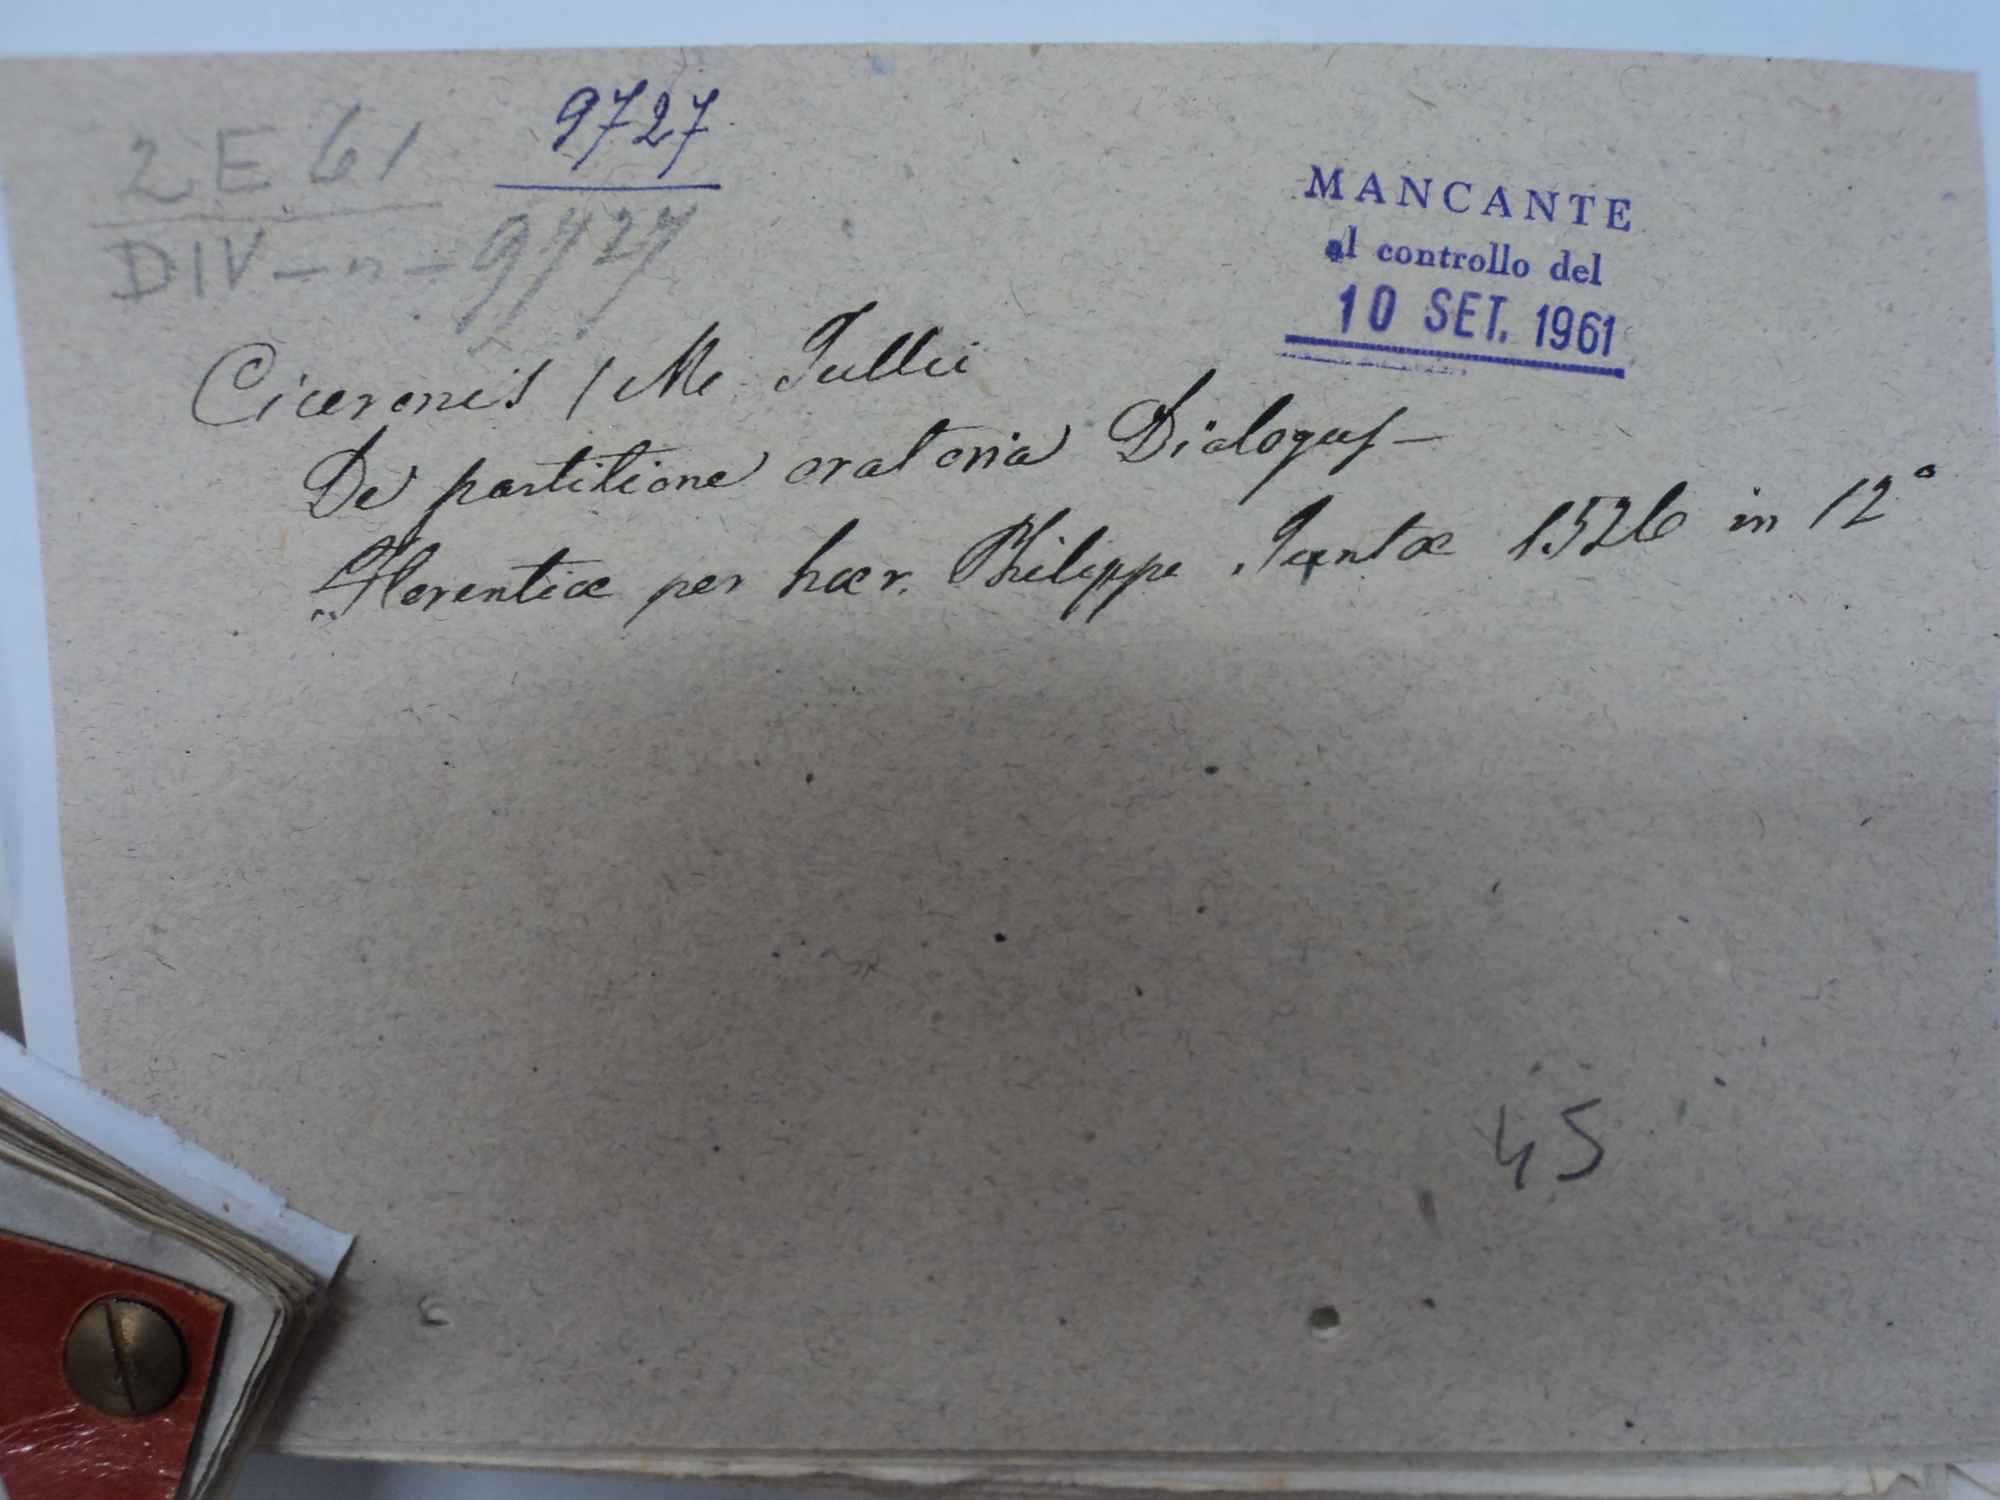 2 E 61
9727
DIV - n - 9727
MANCANTE
al controllo del
10 SET. 1961
Ciceronis / M. Tullii
De partitione oratoria Dialogus -
Florentiæ per hær. Philippi Juntæ 1526 in 12°
45